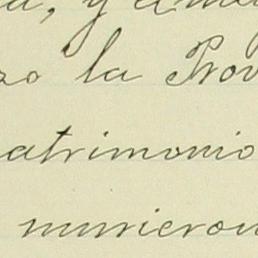 , y
zo la Prov
atrimonio
murieron